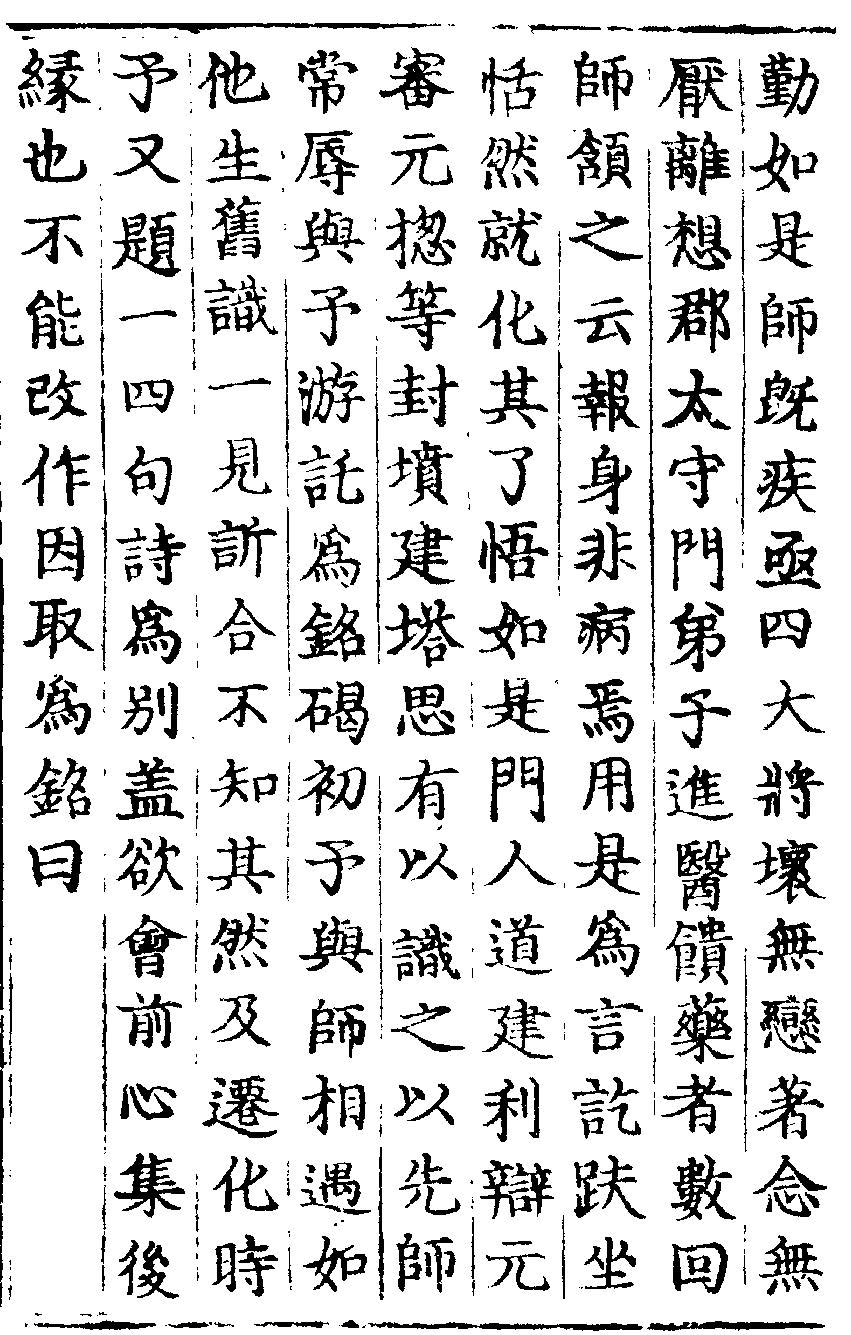 勤如是師既疾亟四大將壞無戀著念無
厭離想郡太守門弟子進醫饋藥者數回
師頷之云報身非病焉用是爲言訖趺坐
恬然就化其了悟如是門人道建利辯元
審元揔等封墳建塔思有以識之以先師
常辱與予游託爲銘碣初予與師相遇如
他生舊識一見訢合不知其然及遷化時
予又題一四句詩爲别蓋欲會前心集後
緣也不能改作因取爲銘曰